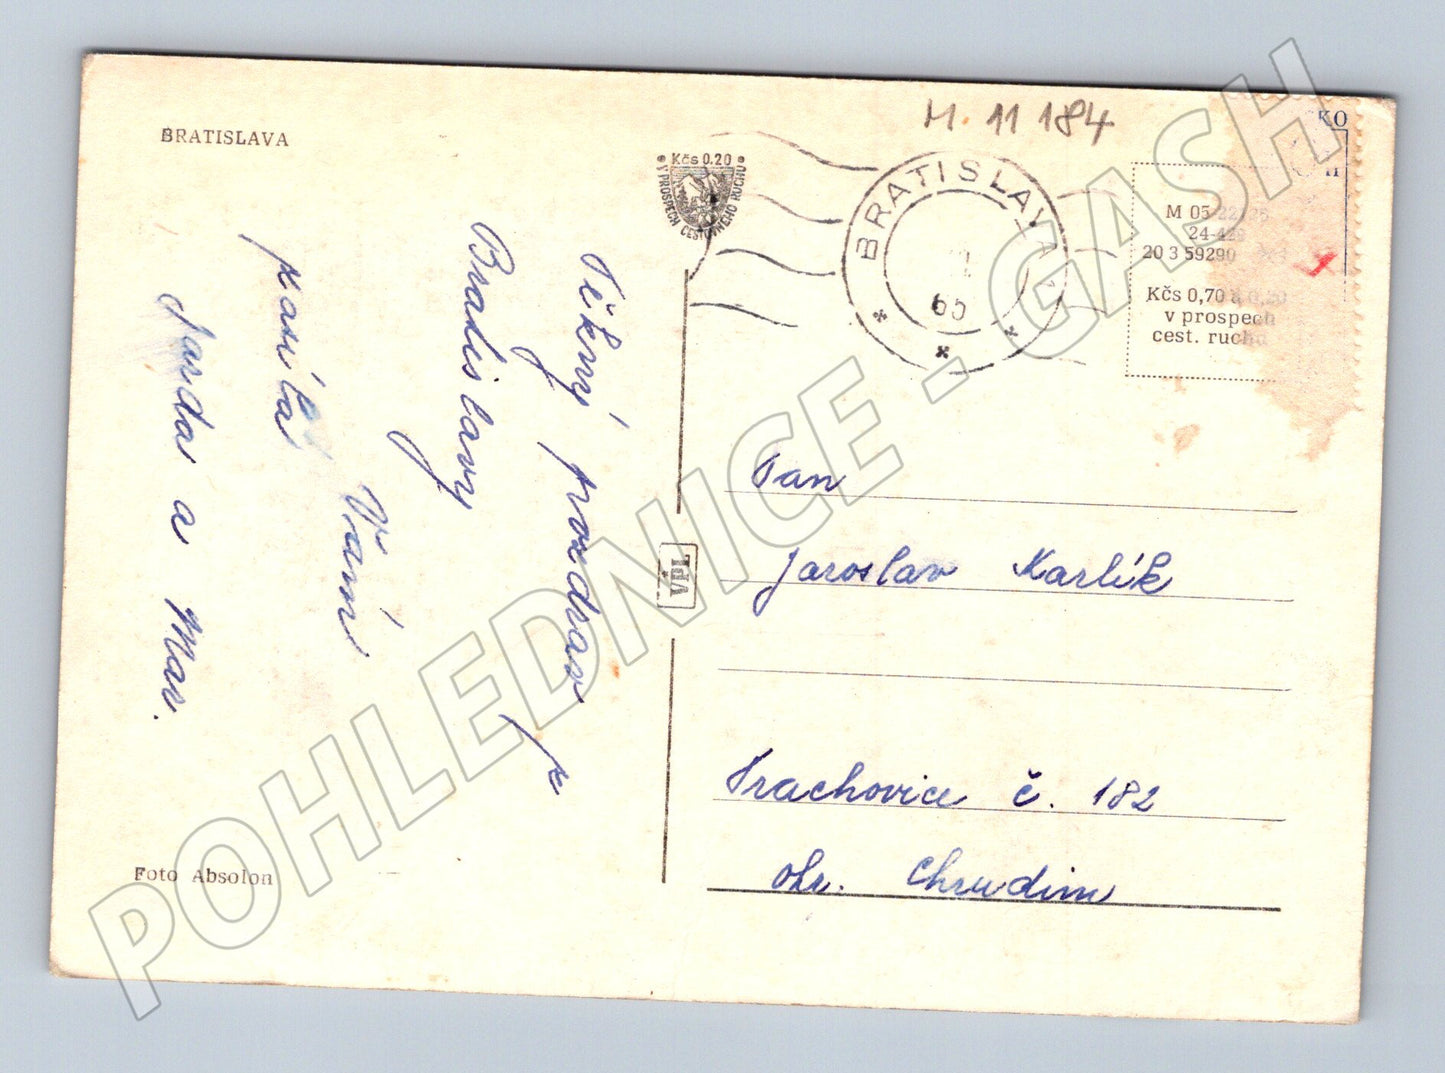 BRATISLAVA
Pěkný pozdrav z
Bratislavy
Vám
posílá
Jarda a Mar.
Foto Absolon
Kčs 0.20
V PROSPECH CESTOVNÉHO RUCHU
VPL
M 11 184
BRATISLAVA
65
KO
M 05-22
24-42
20 3 59290
Kčs 0,70 a 0,20
v prospech
cest. ruchu
Pan
Jaroslav Karlík
Prachovice č. 182
okr. Chrudim
POHLEDNICE - GASH